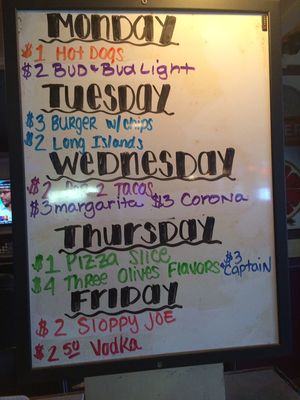 Monday
$1 Hot Dogs
$2 Bud & Bud Light
Tuesday
$3 Burger w/ chips
$2 Long Islands
Wednesday
$2 2 Tacos
$3 margarita $3 Corona
Thursday
$1 Pizza Slice
$4 Three Olives Flavors $3 Captain
Friday
$2 Sloppy Joe
$2 50 Vodka